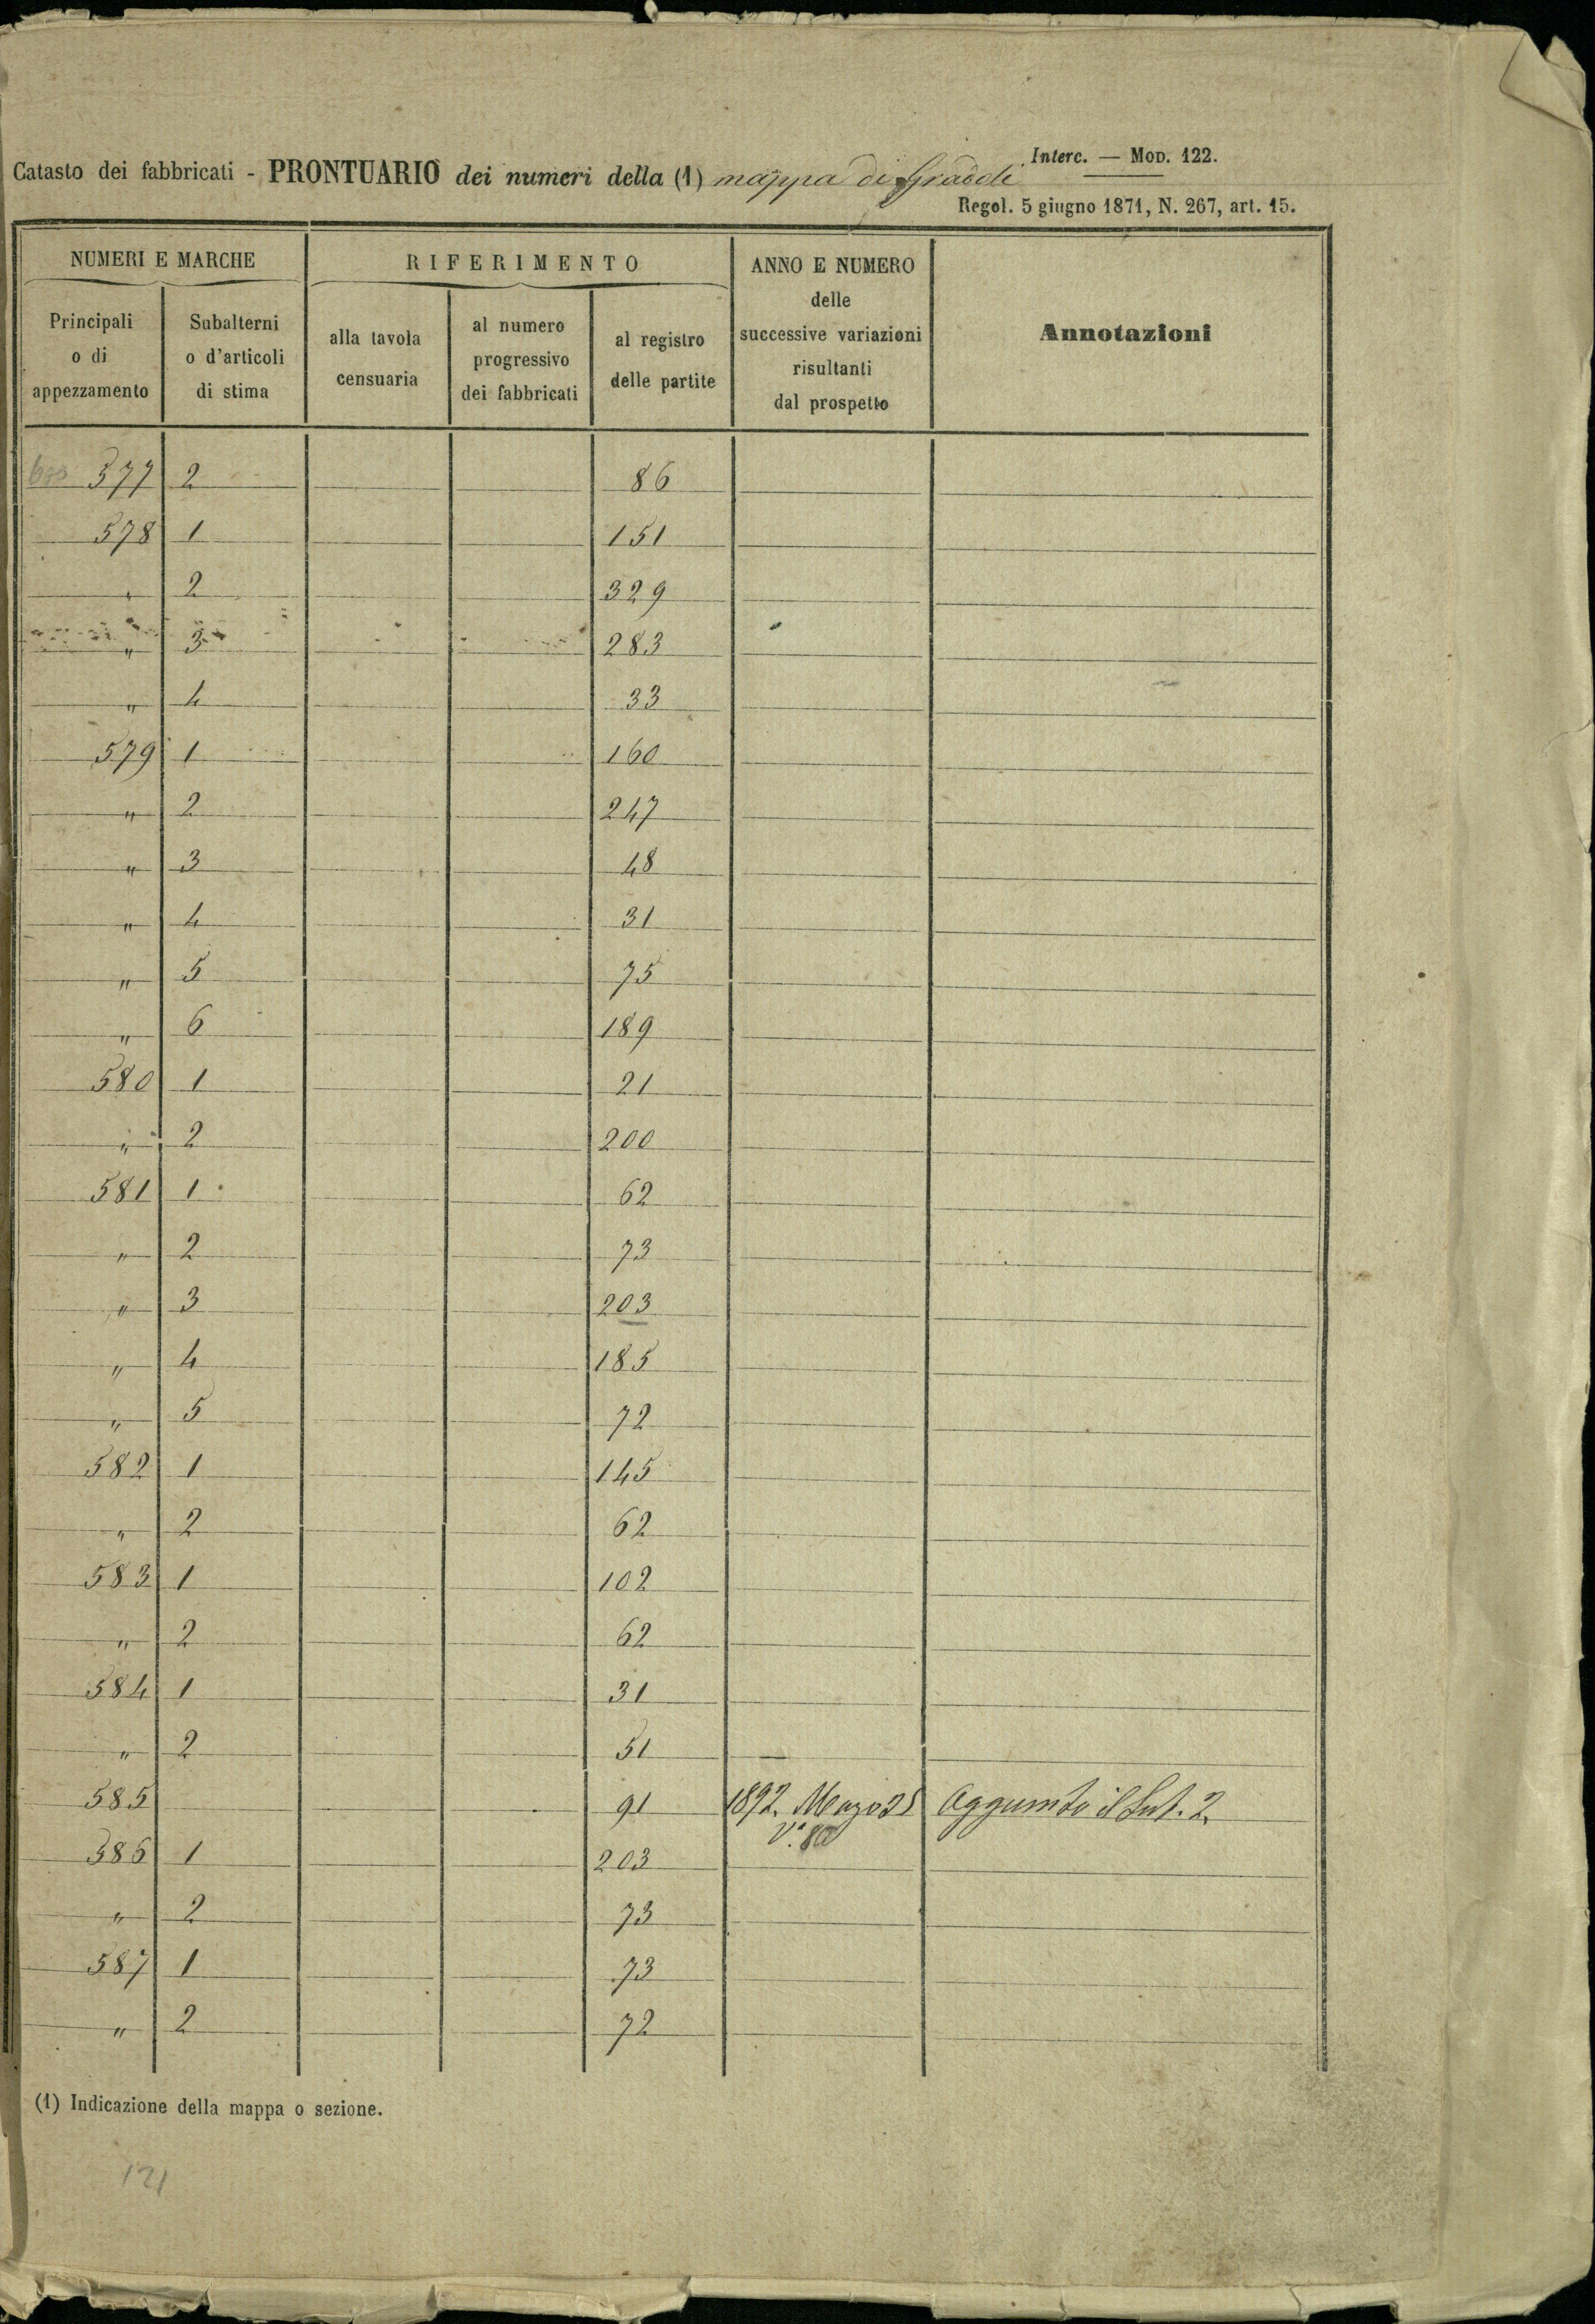 Interc. — Mod. 122.
Catasto dei fabbricati - PRONTUARIO dei numeri della (1) mappa di Gradoli
Regol. 5 giugno 1871, N. 267, art. 15.
NUMERI E MARCHE
RIFERIMENTO
ANNO E NUMERO
delle
successive variazioni
risultanti
dal prospetto
Annotazioni
Principali
o di
appezzamento
Subalterni
o d'articoli
di stima
alla tavola
censuaria
al numero
progressivo
dei fabbricati
al registro
delle partite
577 2 86
578 1 151
" 2 329
" 3 283
" 4 33
579 1 160
" 2 247
" 3 48
" 4 31
" 5 75
" 6 189
580 1 21
" 2 200
581 1 62
" 2 73
" 3 203
" 4 185
" 5 72
582 1 145
" 2 62
583 1 102
" 2 62
584 1 31
" 2 51 —
585 91 1892. Marzo 25 Aggiunto il Sub. 2.
586 1 203
" 2 73
587 1 73
" 2 72
(1) Indicazione della mappa o sezione.
121